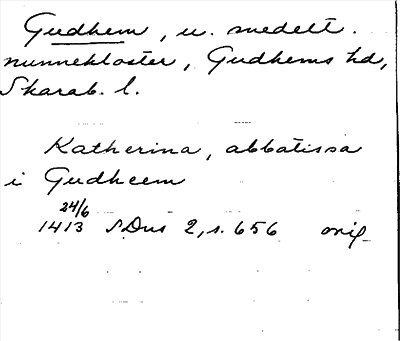 Gudhem, u. medelt.
nunnekloster, Gudhems hd,
Skarab. l.
Katherina, abbatissa
i Gudheem
24/6
1413 SDns 2, s. 656 orig